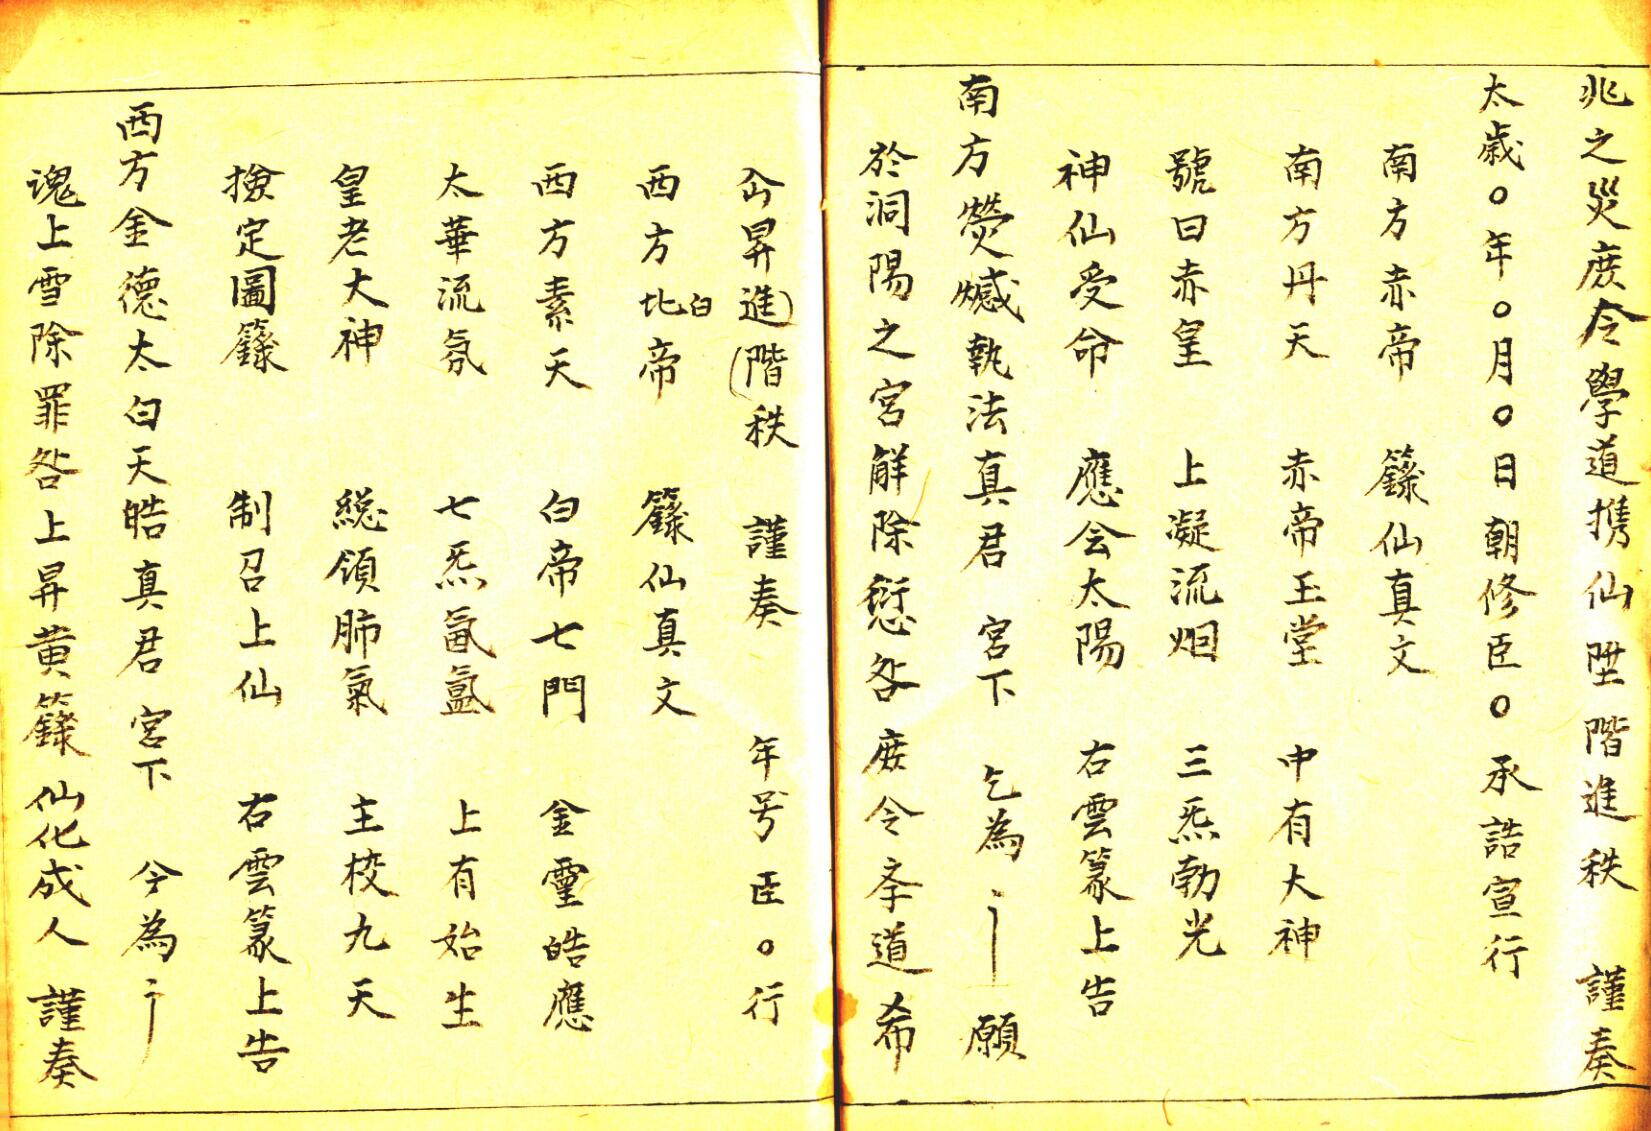 兆之災庻令學道携仙陞階進秩 謹奏
太歳○年○月○日朝修臣○承誥宣行
南方赤帝 籙仙真文
南方丹天 赤帝玉堂 中有大神
號曰赤皇 上凝流烟 三炁勃光
神仙受命 應会太陽 右雲篆上告
南方熒𤌴執法真君 宮下 乞為 願
於洞陽之宮解除愆咎庻令斈道希
仚昇進階秩 謹奏 年号臣○行
西方白帝 籙仙真文
西方素天 白帝七門 金靈皓應
太華流氛 七炁氤氳 上有始生
皇老大神 総領肺氣 主校九天
撿定圖籙 制召上仙 右雲篆上告
西方金德太白天皓真君 宮下 今為
魂上雪除罪咎上昇黄籙仙化成人 謹奏